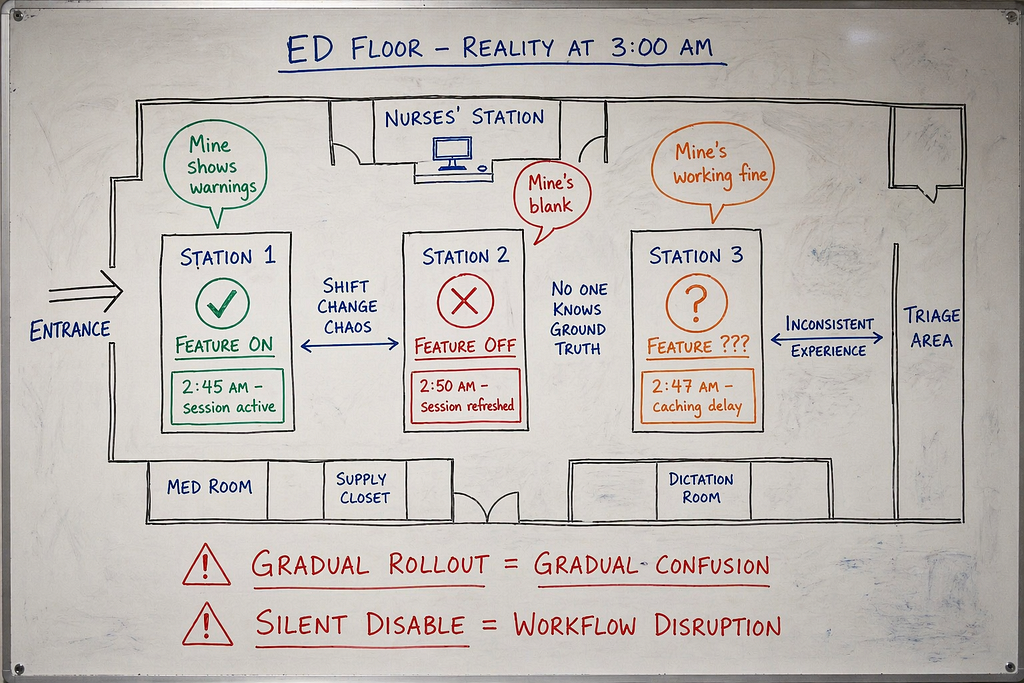 ED FLOOR – REALITY AT 3:00 AM
NURSES' STATION
Mine
shows
warnings
Mine's
blank
Mine's
working fine
STATION 1
FEATURE ON
2:45 AM –
Session active
SHIFT
CHANGE
CHAOS
STATION 2
FEATURE OFF
2:50 AM –
Session refreshed
NO ONE
KNOWS
GROUND
TRUTH
STATION 3
?
FEATURE ???
2:47 AM –
Caching delay
INCONSISTENT
EXPERIENCE
TRIAGE
AREA
ENTRANCE
MED ROOM
SUPPLY
CLOSET
DICTATION
ROOM
! GRADUAL ROLLOUT = GRADUAL CONFUSION
! SILENT DISABLE = WORKFLOW DISRUPTION